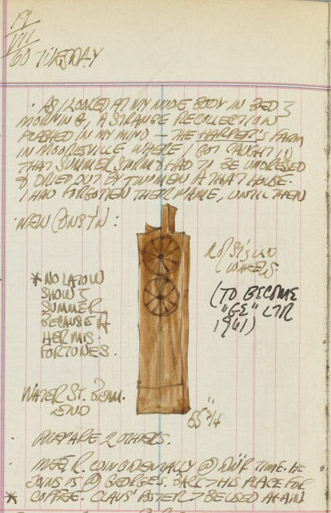 19
VII
60 TUESDAY
· AS I LOOKED AT MY NUDE BODY IN BED
MORNING, A STRANGE RECOLLECTION
FLASHED IN MY MIND — THE HARPER'S FARM
IN MOORESVILLE WHERE I GOT CAUGHT IN
THAT SUMMER STORM & HAD TO BE UNDRESSED
& DRIED OUT BY TWO MEN AT THAT HOUSE.
I HAD FORGOTTEN THEIR NAME, UNTIL THEN
· NEW CONST'N:
WHEELS
* NO
SHOW
SUMMER
BECAUSE OF
HER MIS-
FORTUNES.
(TO BECOME
"GE" LTR
1961)
WATER ST. BEAM.
END
65" 3/4
· PREPARE 2 OTHERS.
· MEET R. COINCIDENTALLY @ TIME. HE
JOINS US @ GEORGES. BACK HIS PLACE FOR
* COFFEE. BE USED AGAIN